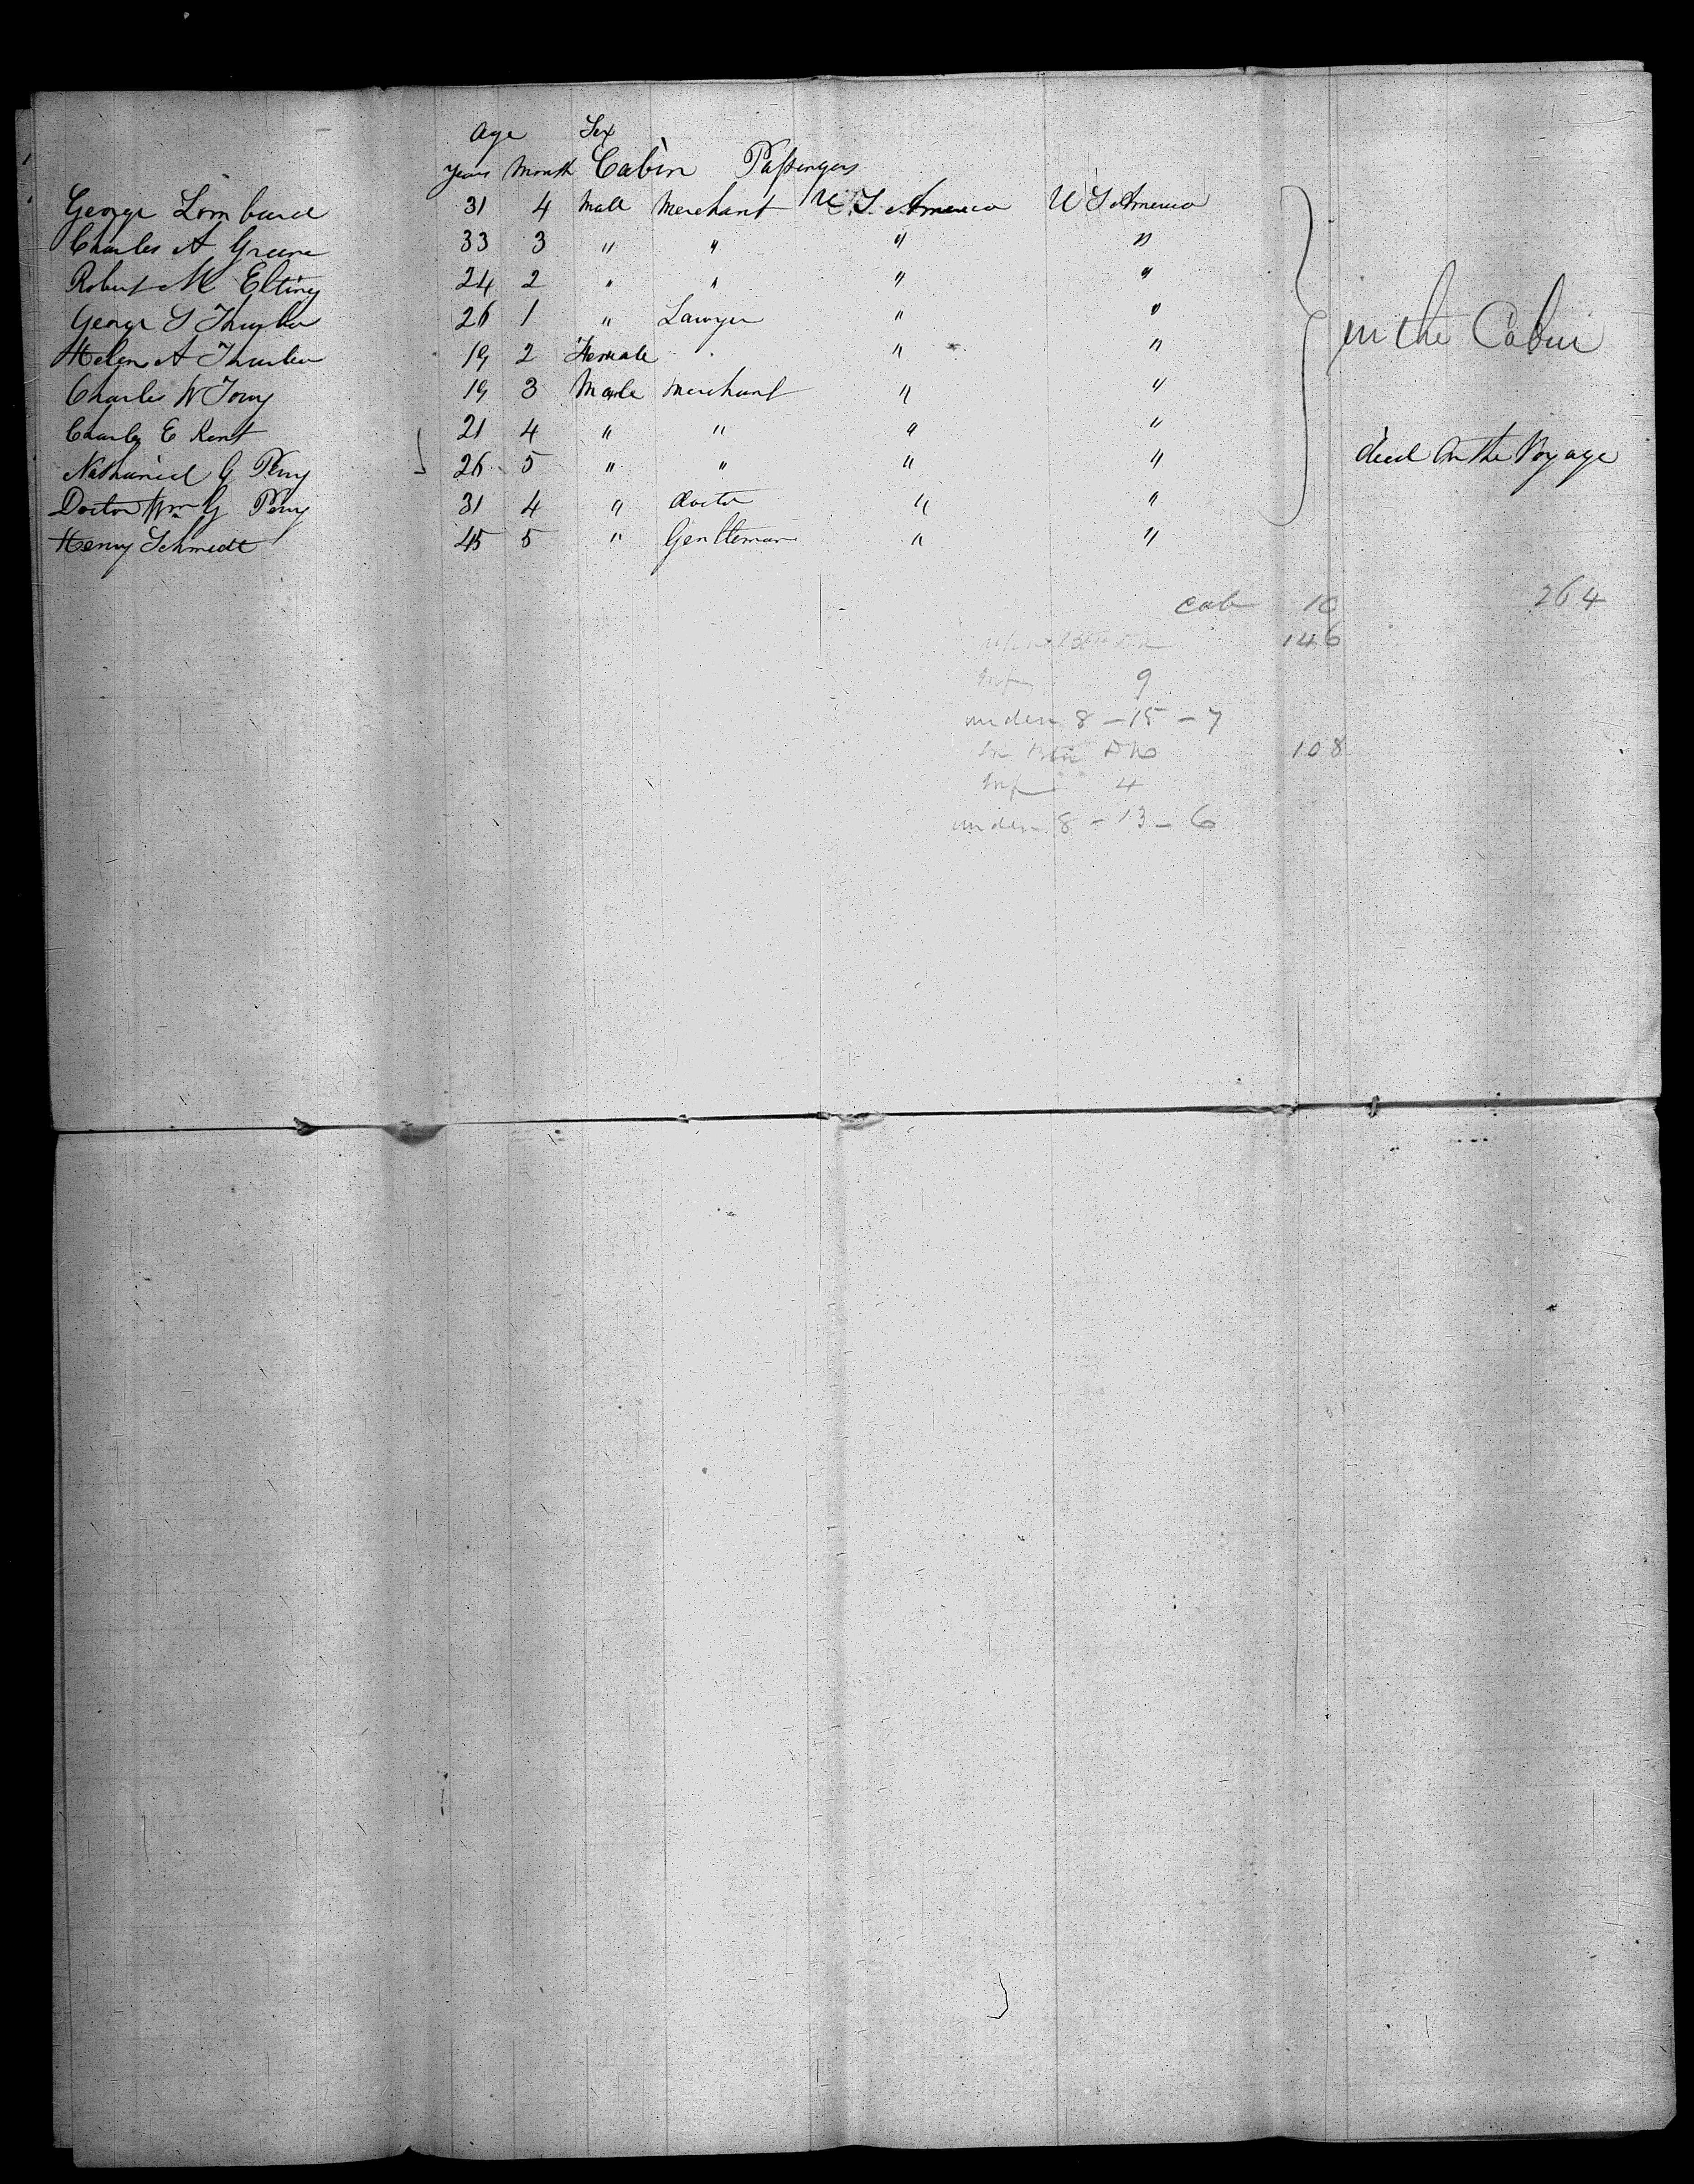 Age Sex
years Month Cabin Passengers
George Lombard 31 4 Male Merchant U.S. America U S America
Charles A Greene 33 3 " " " "
Robert M Elting 24 2 " " " "
George S Thurber 26 1 " Lawyer " "
Helen A Thurber 19 2 Female " "
Charles W 19 3 Male Merchant " "
Charles E Kent 21 4 " " " "
Nathaniel G Perry 26 5 " " " " died On the Voyage
Doctor Wm G Perry 31 4 " doctor " "
Henry Schmedt 45 5 " Gentleman " "
in the Cabin
cab 10 264
146
Inf 9
under 8 - 15 - 7
In 108
Inf 4
under 8 - 13 - 6